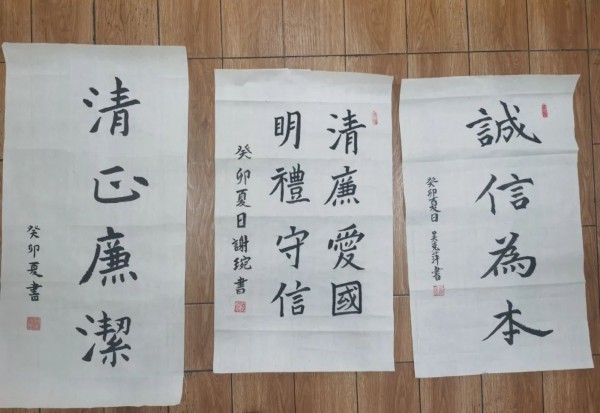 清正廉潔
癸卯夏書
清廉愛國
明禮守信
癸卯夏日謝琬書
誠信為本
癸卯夏日 吴惠萍書